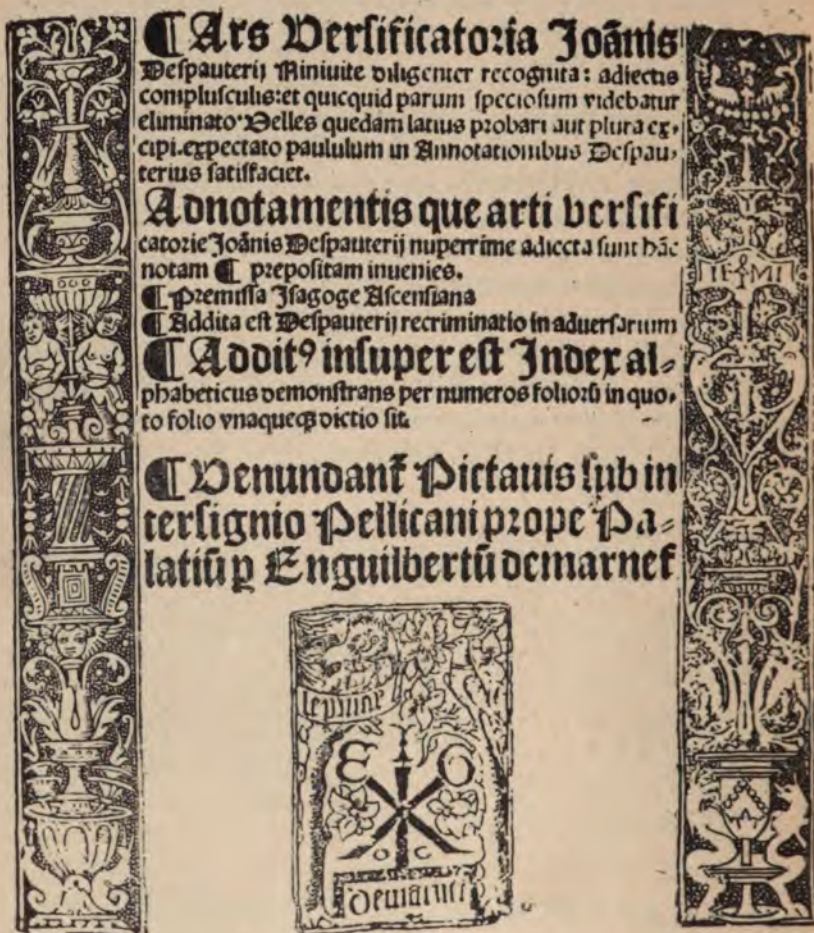 ¶ Ars Versificatoria Joãnis
Despauterij Niniuite diligenter recognita: adiectis
complusculis: et quicquid parum speciosum videbatur
eliminato. Velles quedam latius probari aut plura ex⸗
cipi. expectato paululum in Annotationibus Despau⸗
terius satisfaciet.
Adnotamentis que arti versifi
catorie Joãnis Despauterij nuperrime adiecta sunt hãc
notam ¶ prepositam inuenies.
¶ Premissa Isagoge Ascensiana
¶ Addita est Despauterij recriminatio in aduersarium
¶ Additꝰ insuper est Index al⸗
phabeticus demonstrans per numeros foliorũ in quo⸗
to folio vnaqueqꝫ dictio sit.
¶ Venundant̃ Pictauis sub in
tersignio Pellicani prope Pa⸗
latiũ ꝑ Enguilbertũ demarnef
E I G
O C